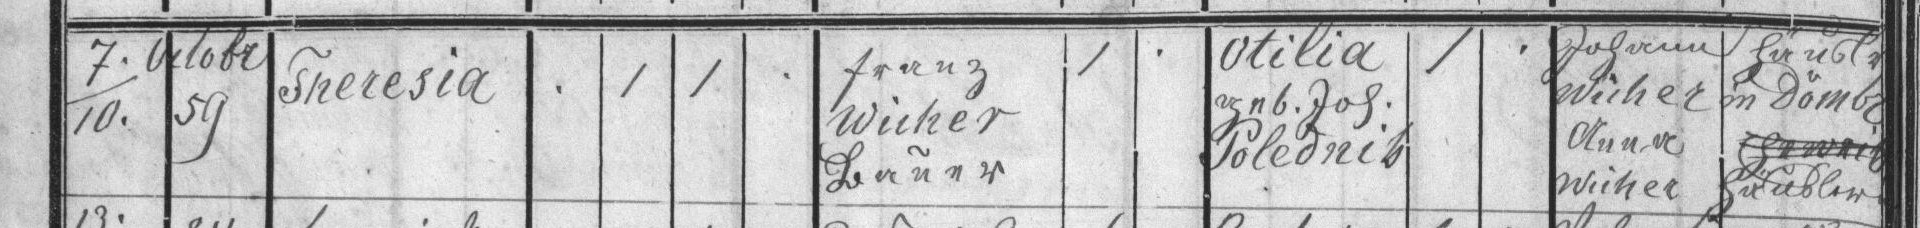 7. Octobr
10. 59
Theresia . / / .
Franz
Wicher
Bauer
/ .
Otilia
geb. Joh.
Polednik
/ .
Johann Häusler
Wicher in Dombr
Anna
Wicher Häusler
13.